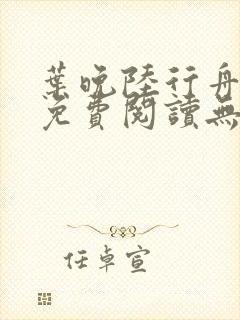 葉晚陸行舟
免費閱讀無
任卓宣